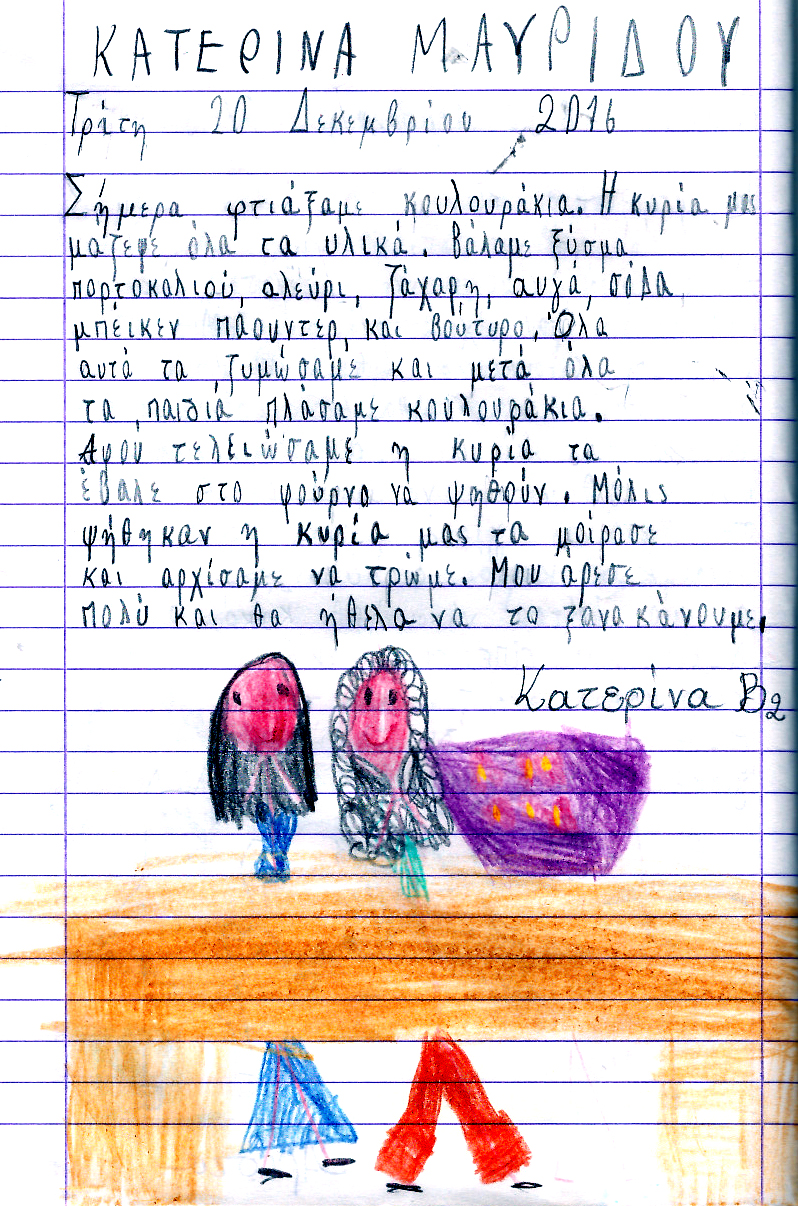 ΚΑΤΕΡΙΝΑ ΜΑΥΡΙΔΟΥ
Τρίτη 20 Δεκεμβρίου 2016
Σήμερα φτιάξαμε κουλουράκια. Η κυρία μας
μάζεψε όλα τα υλικά. Βάλαμε ξύσμα
πορτοκαλιού, αλεύρι, ζάχαρη, αυγά, σόδα
μπέικεν πάουντερ, και βούτυρο. Όλα
αυτά τα ζυμώσαμε και μετά όλα
τα παιδιά πλάσαμε κουλουράκια.
Αφού τελειώσαμε η κυρία τα
έβαλε στο φούρνο να ψηθούν. Μόλις
ψήθηκαν η κυρία μας τα μοίρασε
και αρχίσαμε να τρώμε. Μου άρεσε
πολύ και θα ήθελα να το ξανακάνουμε.
Κατερίνα Β2